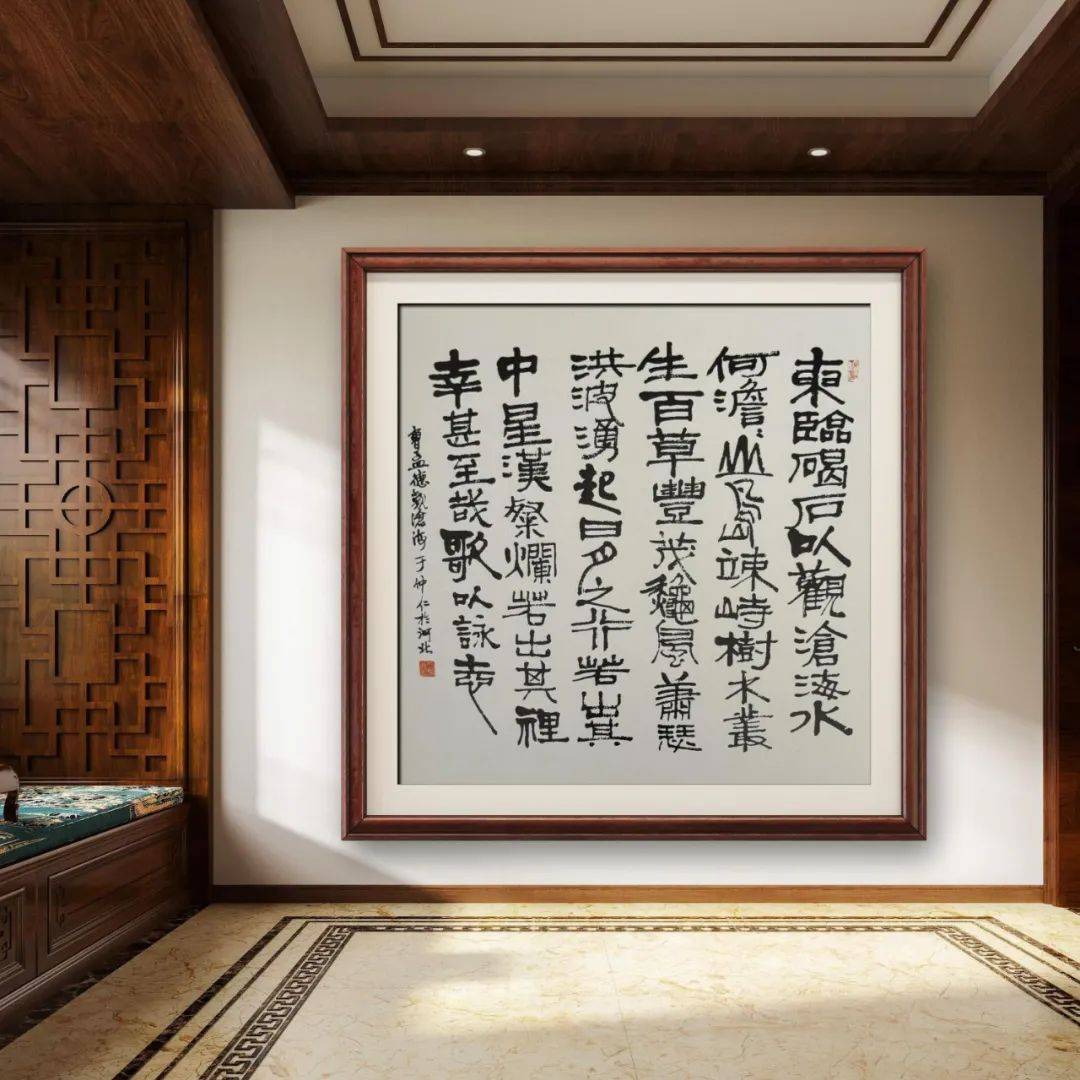 東臨碣石以觀滄海水
何澹〻山島竦峙樹木叢
生百草豐茂龝風蕭瑟
洪波湧起日月之行若出其
中星漢粲爛若出其裡
幸甚至哉歌以詠志
曹孟德觀滄海于仲仁於河北